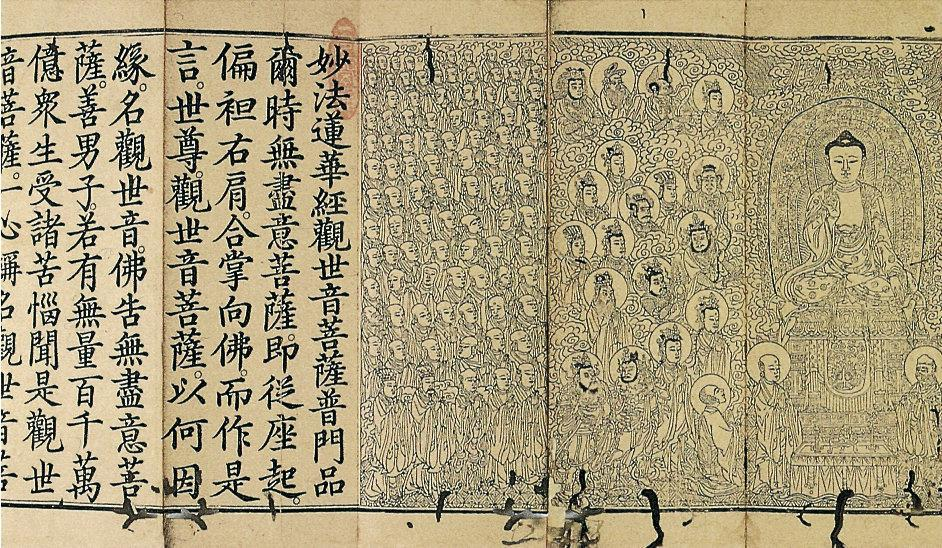 妙法蓮華經觀世音菩薩普門品
爾時無盡意菩薩。即從座起。
偏袒右肩。合掌向佛。而作是
言。世尊。觀世音菩薩。以何因
緣。名觀世音。佛告無盡意菩
薩。善男子。若有無量百千萬
億衆生受諸苦惱聞是觀世
音菩薩。一心稱名觀世音菩